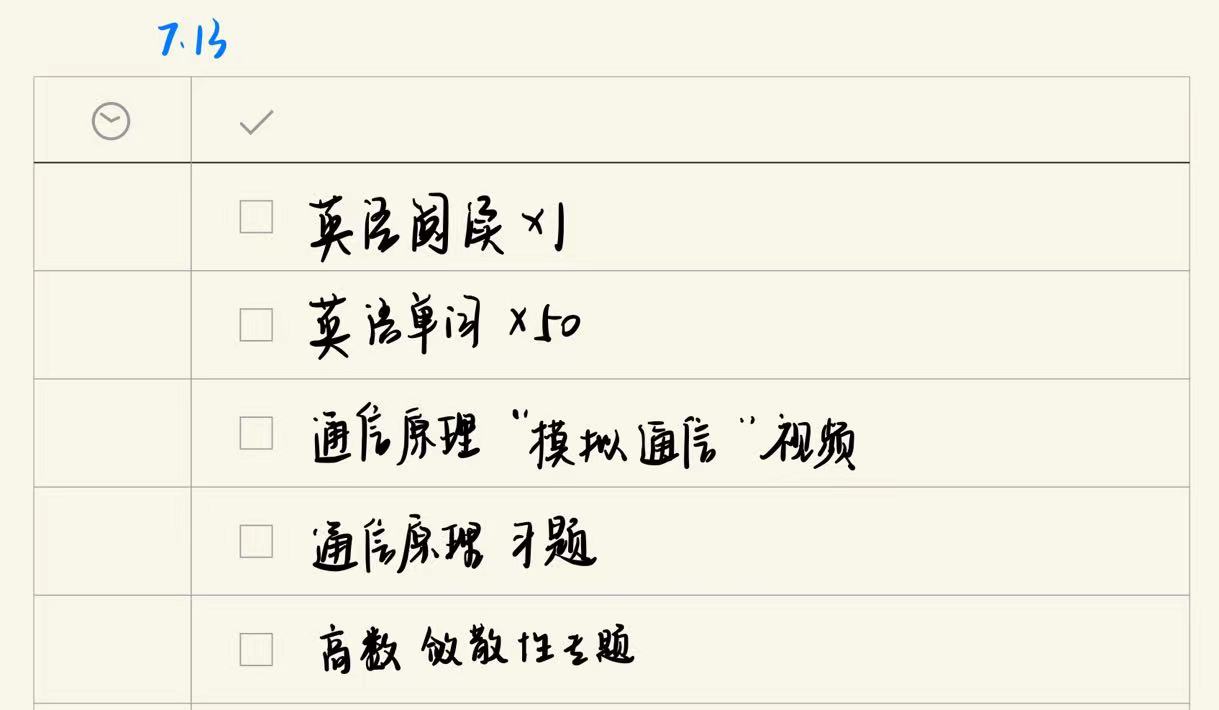 7.13
英语阅读 ×1
英语单词 ×50
通信原理 “模拟通信” 视频
通信原理 习题
高数 敛散性专题